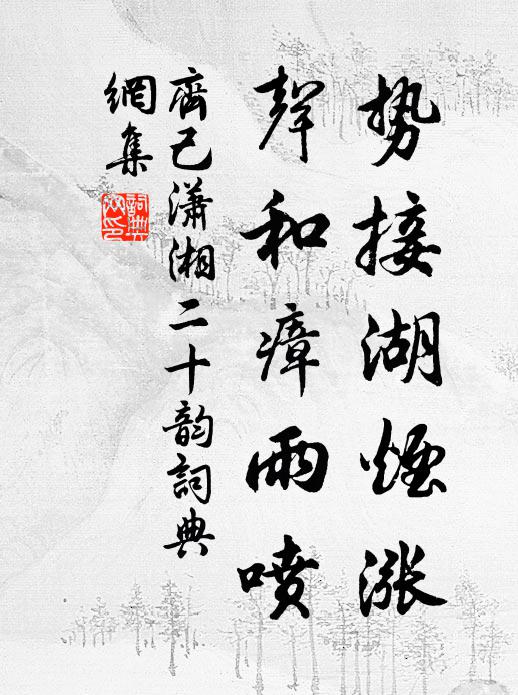 势接湖煙涨
聲和瘴雨喷
齊己瀟湘二十韵詞典
網集